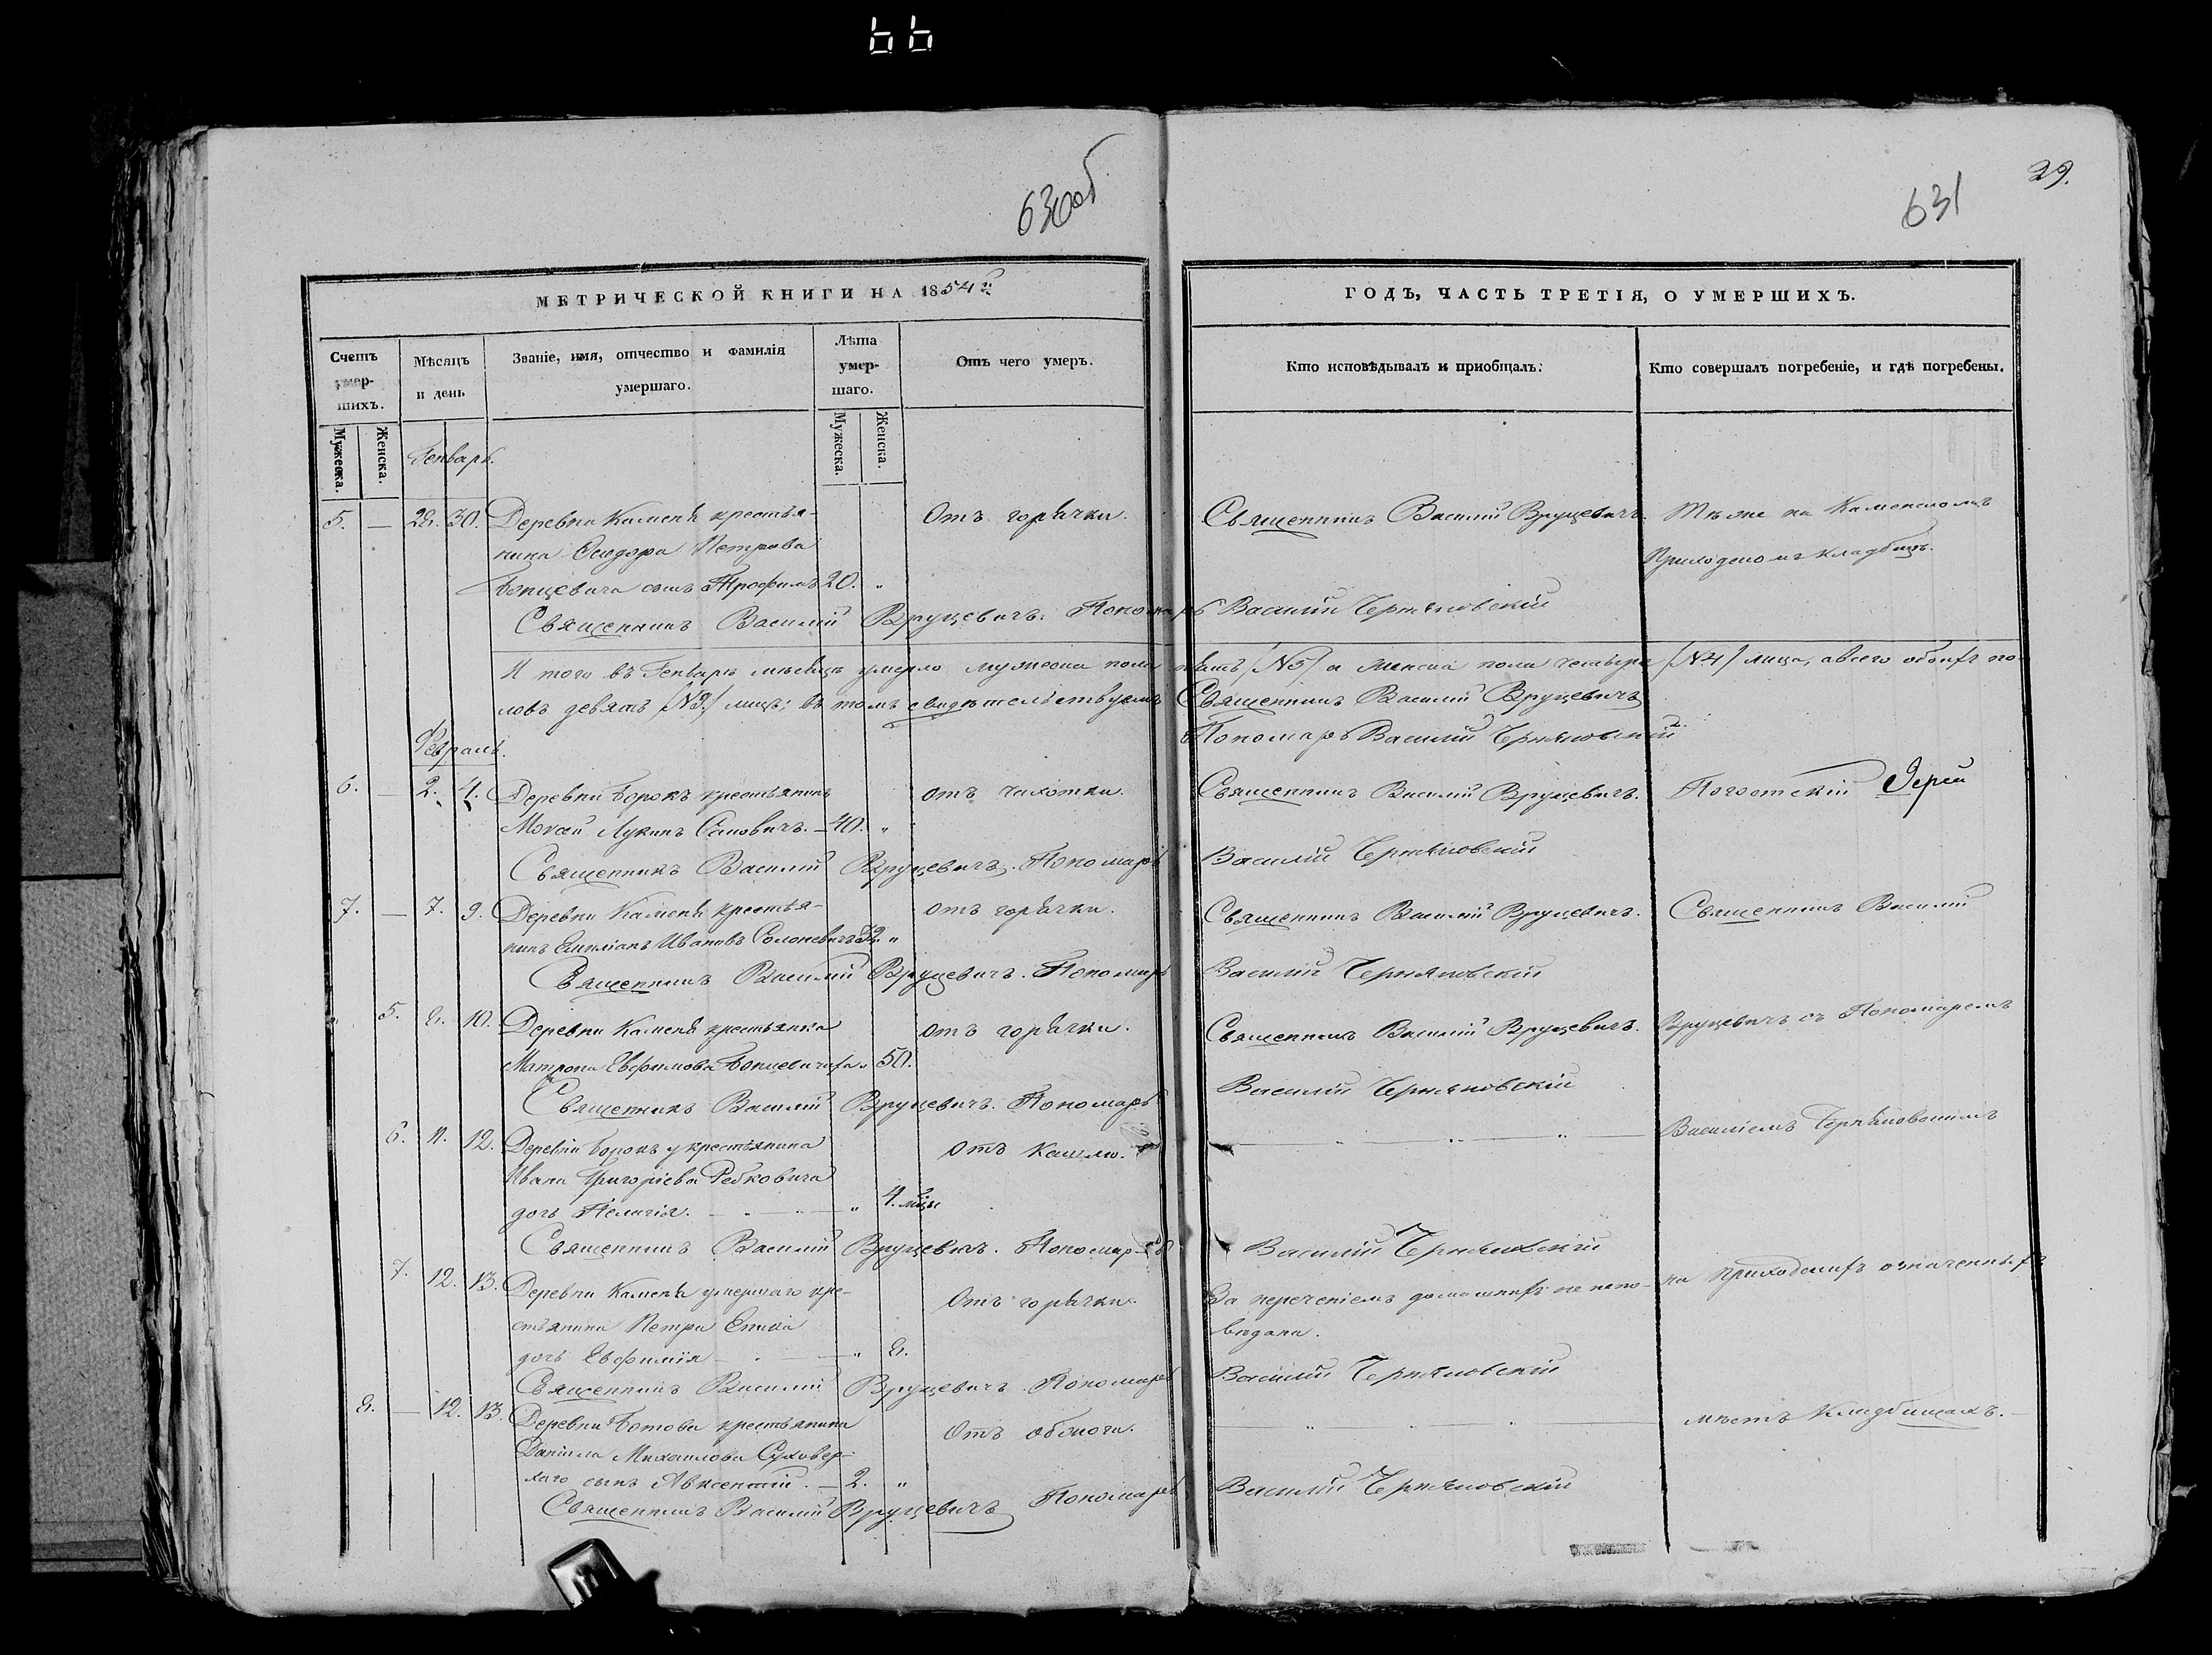 630об
631
29.
МЕТРИЧЕСКОЙ КНИГИ НА 1854й
ГОДЪ, ЧАСТЬ ТРЕТІЯ, О УМЕРШИХЪ.
Счетъ умер-шихъ.
Мужеска.
Женска.
Мѣсяцъ и день
Званіе, имя, отчество и фамилія умершаго.
Лѣта умер-шаго.
Мужеска.
Женска.
Отъ чего умеръ.
Кто исповѣдывалъ и приобщалъ.
Кто совершалъ погребеніе, и гдѣ погребены.
Генварь.
5. — 28. 30. Деревни Каменя крестья- Отъ горячки. Священникъ Василій Вруцевичъ. Тѣ же на Каменскомъ
нина Ѳеодора Петрова Приходскомъ кладбищѣ.
Бонцевича сынъ Трофимъ 20. "
Священникъ Василій Вруцевичъ. Пономарь Василій Черняковскій
И того въ Генварѣ мѣсяцѣ умерло мужеска пола пять /№5/ а женска пола четыре /№4/ лица, а всего обоихъ по-
ловъ девять /№9/ лицъ; въ томъ свидѣтельствуемъ Священникъ Василій Вруцевичъ
Пономарь Василій Черняковскій
Февраль.
6. — 2. 4. Деревни Борокъ крестьянинъ отъ чахотки. Священникъ Василій Вруцевичъ. Погостскій Іерей
Моѵсей Лукинъ — 40. "
Священникъ Василій Вруцевичъ. Пономарь Василій Черняковскій
7. — 7. 9. Деревни Каменя крестья- отъ горячки. Священникъ Василій Вруцевичъ. Священникъ Василій
нинъ Емиліанъ Ивановъ Солоневичъ "
Священникъ Василій Вруцевичъ. Пономарь Василій Черняковскій
" 5. 8. 10. Деревни Каменя крестьянка отъ горячки. Священникъ Василій Вруцевичъ. Вруцевичъ съ Пономаремъ
Матрона Евфимова Бонцевичева " 50.
Священникъ Василій Вруцевичъ. Пономарь Василій Черняковскій
6. 11. 12. Деревни Борокъ у крестьянина Отъ кашлю. Василіемъ Черняковскимъ
Ивана Григоріева Ребковича
дочь Пелагія. " 4. мѣцы
Священникъ Василій Вруцевичъ. Пономарь Василій Черняковскій
7. 12. 13. Деревни Каменя умершаго кре- Отъ горячки. За перечені­емъ домашнихъ не испо- на приходскихъ означенныхъ
стьянина Петра вѣдана.
дочь Евфимія " 8.
Священникъ Василій Вруцевичъ. Пономарь Василій Черняковскій
8. — 12. 13. Деревни Ботова крестьянина Отъ обжоги. мѣстъ кладбищахъ.
Даніила Михаилова Суховер-
хаго сынъ Авксентій. — 2. "
Священникъ Василій Вруцевичъ Пономарь Василій Черняковскій